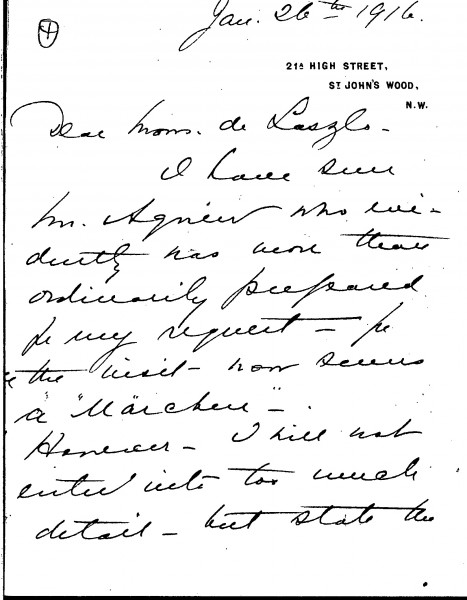 4
Jan. 26th 1916.
21A HIGH STREET,
ST JOHN'S WOOD,
N.W.
Dear Mons. de Laszlo -
I have seen
Mr. Agnew who evi-
dently was more than
ordinarily prepared
for my request - for
the visit - now seems
a "Märchen" -
However - I will not
enter into too much
detail - but state the